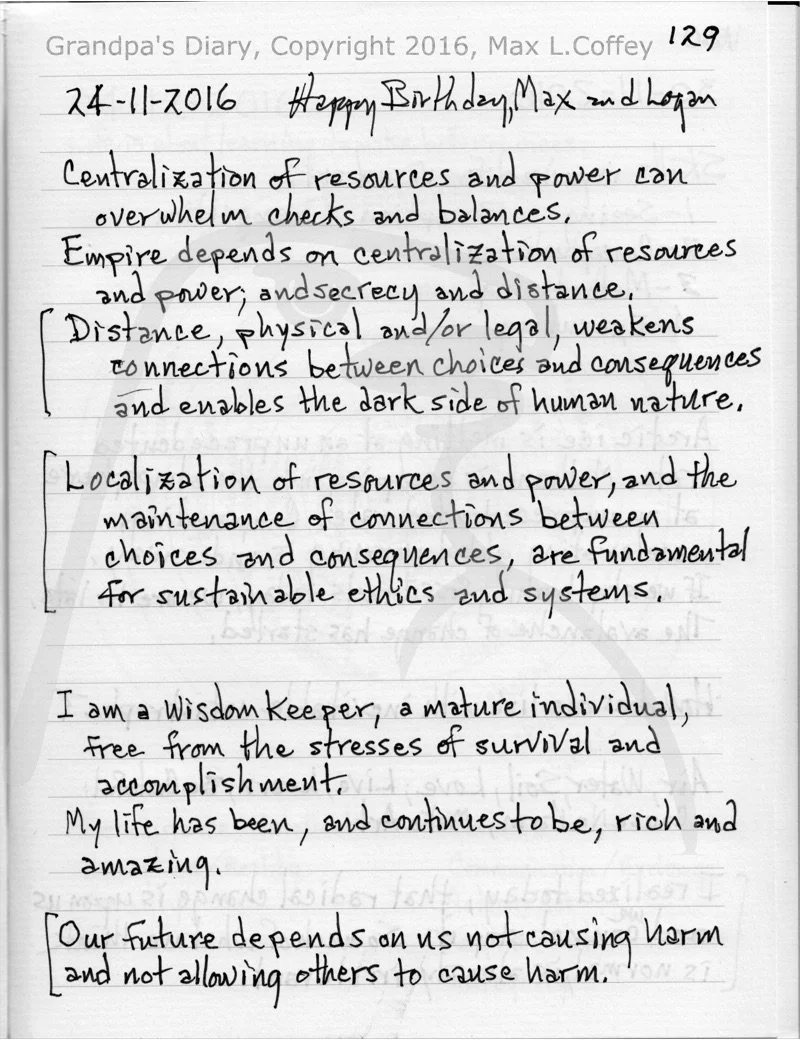 Grandpa's Diary, Copyright 2016, Max L.Coffey 129
24-11-2016 Happy Birthday, Max and Logan
Centralization of resources and power can
overwhelm checks and balances.
Empire depends on centralization of resources
and power; and secrecy and distance.
Distance, physical and/or legal, weakens
connections between choices and consequences
and enables the dark side of human nature.
Localization of resources and power, and the
maintenance of connections between
choices and consequences, are fundamental
for sustainable ethics and systems.
I am a Wisdom Keeper, a mature individual,
free from the stresses of survival and
accomplishment.
My life has been, and continues to be, rich and
amazing.
Our future depends on us not causing harm
and not allowing others to cause harm.